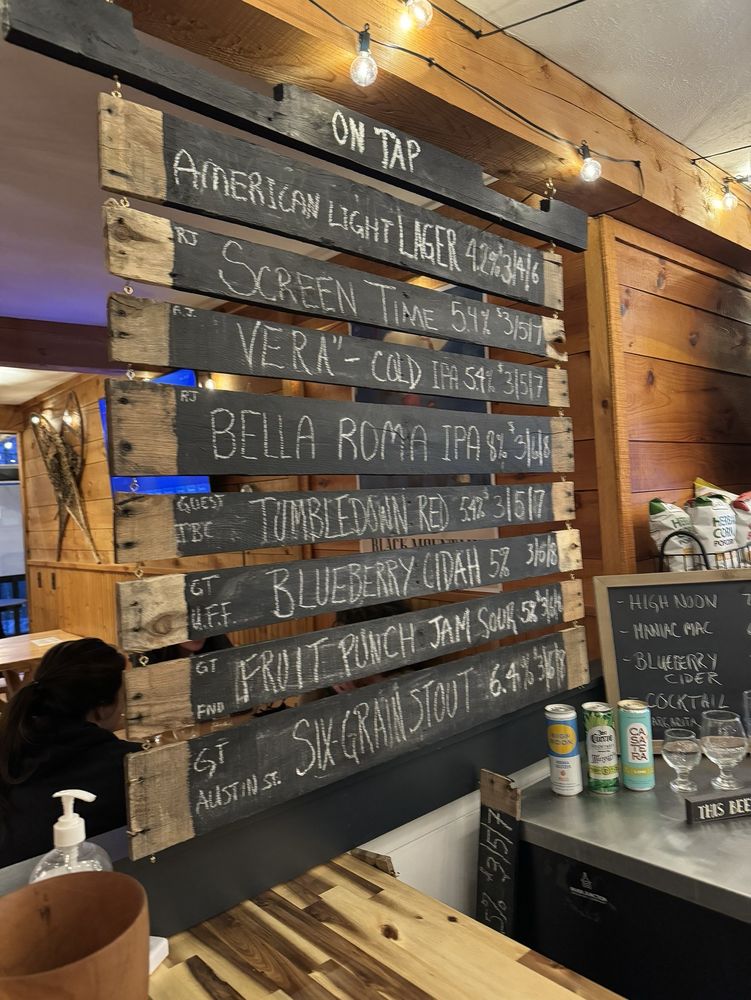 ON TAP
AMERICAN LIGHT LAGER 4.2% $3/4/6
RJ SCREEN TIME 5.4% $3/5/7
R.J. VERA"- COLD IPA 5.4% $3/5/7
RJ BELLA ROMA IPA 8% $3/6/8
GUEST TUMBLEDOWN RED 5.4% $3/5/7
TBC
GT BLUEBERRY CIDAH 5% 3/6/8
U.F.F.
GT FRUIT PUNCH JAM SOUR 5% $3/6/8
FND
GT SIX-GRAIN STOUT 6.4% $3/6/8
AUSTIN ST.
BLACK
- HIGH NOON
- MANIAC MAC
- BLUEBERRY
CIDER
COCKTAIL
HIGH
NOON
CA
ZA
ERA
THIS BEE
5% $3/5/7